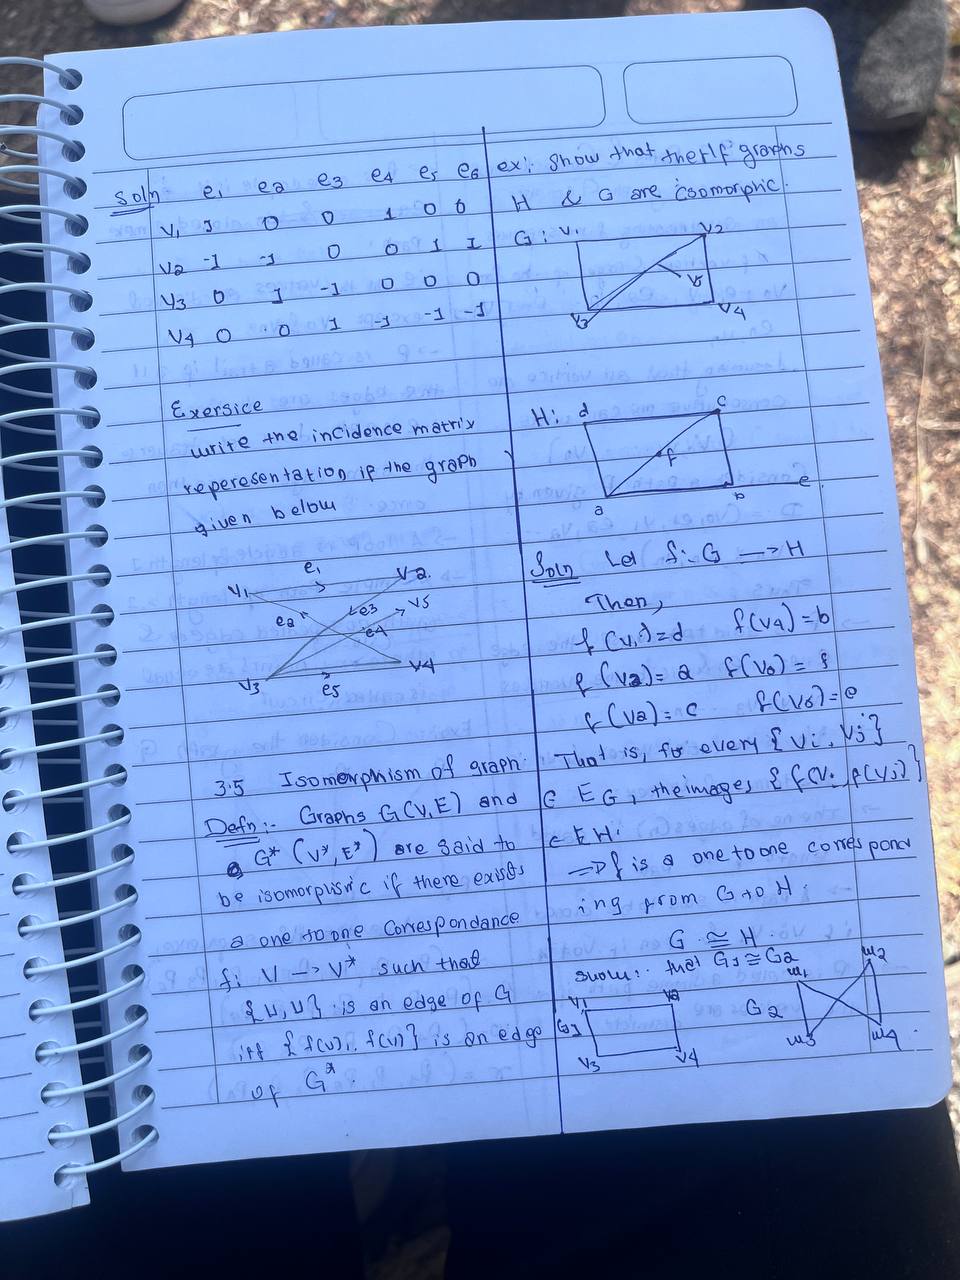 Soln e1 e2 e3 e4 e5 e6
V1 1 0 0 1 0 0
V2 -1 -1 0 0 1 1
V3 0 1 -1 0 0 0
V4 0 0 1 -1 -1 -1
Exersice
write the incidence matrix
reperesentation if the graph
given below
V1 e1 V2.
e2 e3 V5
e4
V3 e5 V4
3.5 Isomorphism of graph:
Defn:- Graphs G(V,E) and
G* (V*, E*) are said to
be isomorphisric if there exists
a one to one correspondance
f: V → V* such that
{u,v} is an edge of G
iff {f(u), f(v)} is an edge
of G*.
ex: Show that the
graphs
H & G are isomorphic.
G: V1 V2
V5
V3 V4
H: d c
f
a b e
Soln Let f: G → H
Then,
f(V1)=d f(V4)=b
f(V2)= a
f(V2)= c
That is, for every {Vi, Vj}
∈ EG, the images {f(Vi, f(Vj)}
∈ EH.
⇒ f is a one to one correspond
ing from G to H.
G ≅ H
show: that G1≅G2
V1 V2
G1
V3 V4
G2
w1 w2
w3 w4